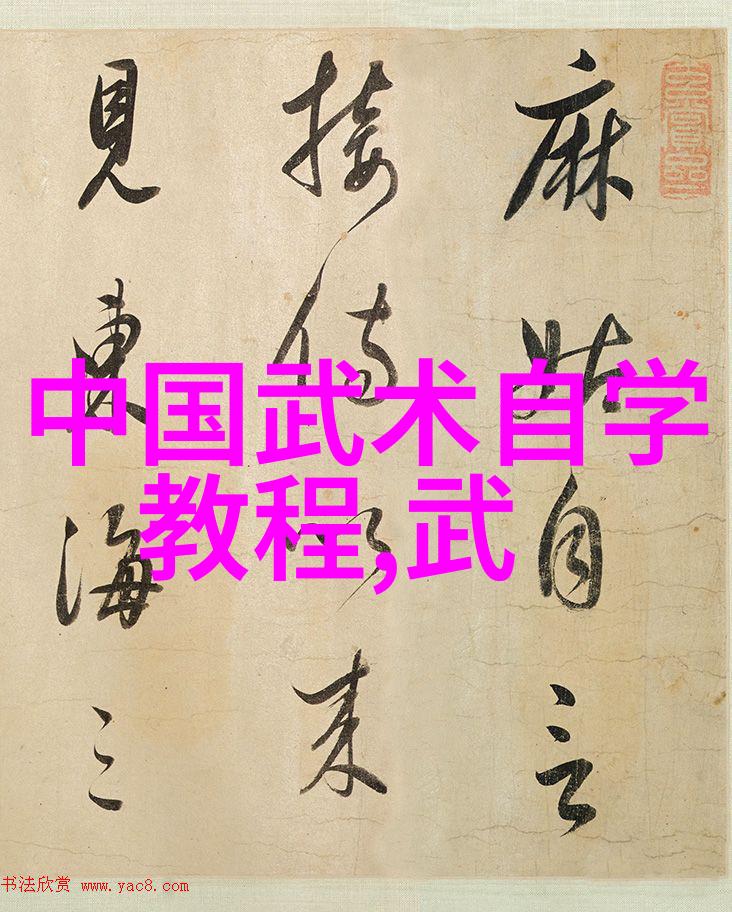 麻姑自言
接侍以来
見東海三
中国武术自学
教程,武
书法欣赏 www.yac8.com